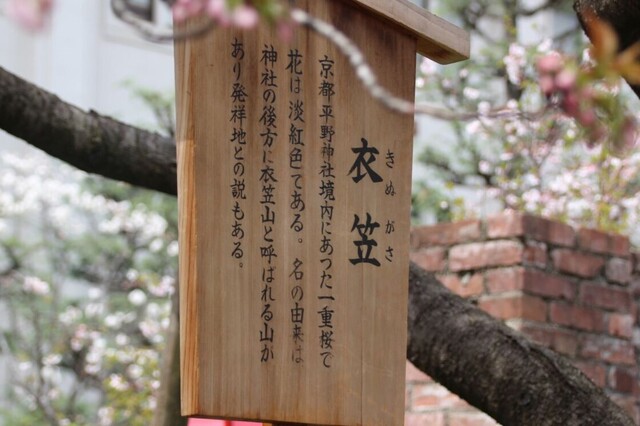 衣笠
きぬがさ
京都平野神社境内にあつた一重桜で
花は淡紅色である。名の由来は
神社の後方に衣笠山と呼ばれる山が
あり発祥地との説もある。